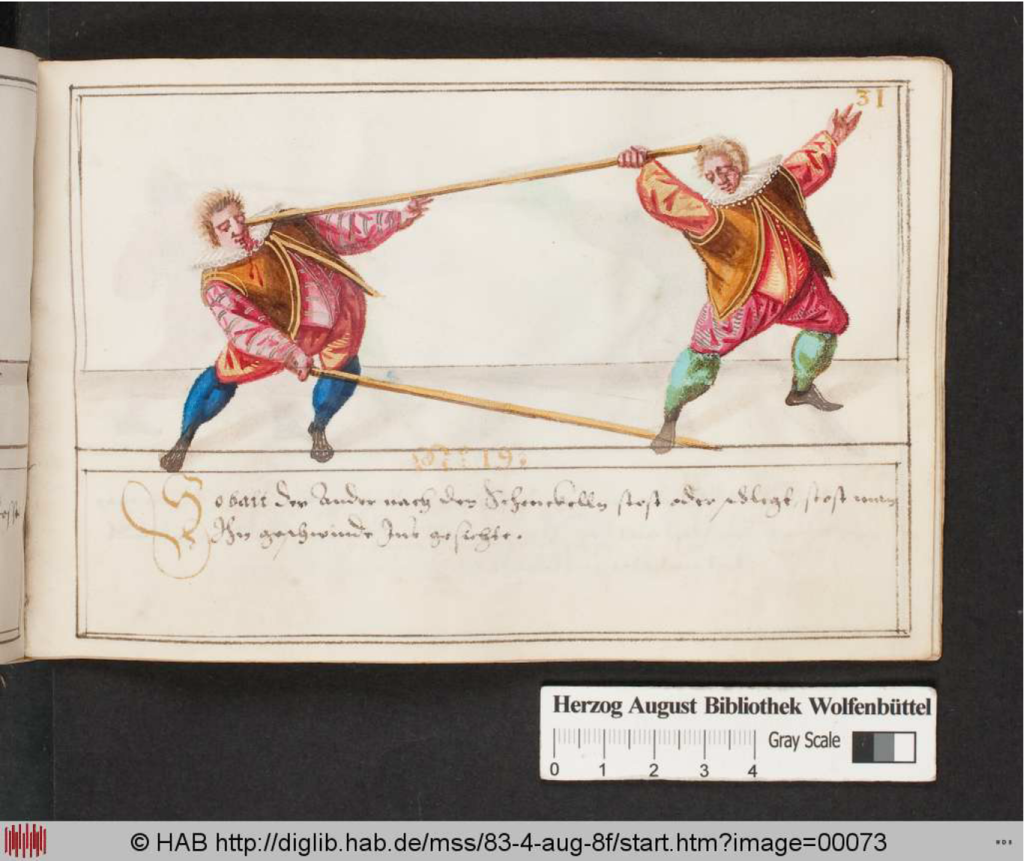 31
N° 19:
Sobalt der Ander nach den Schenckelln stost oder schlegt, stost man
Ihn geschwinde Ins gesichte.
Herzog August Bibliothek Wolfenbüttel
Gray Scale
0 1 2 3 4
© HAB http://diglib.hab.de/mss/83-4-aug-8f/start.htm?image=00073